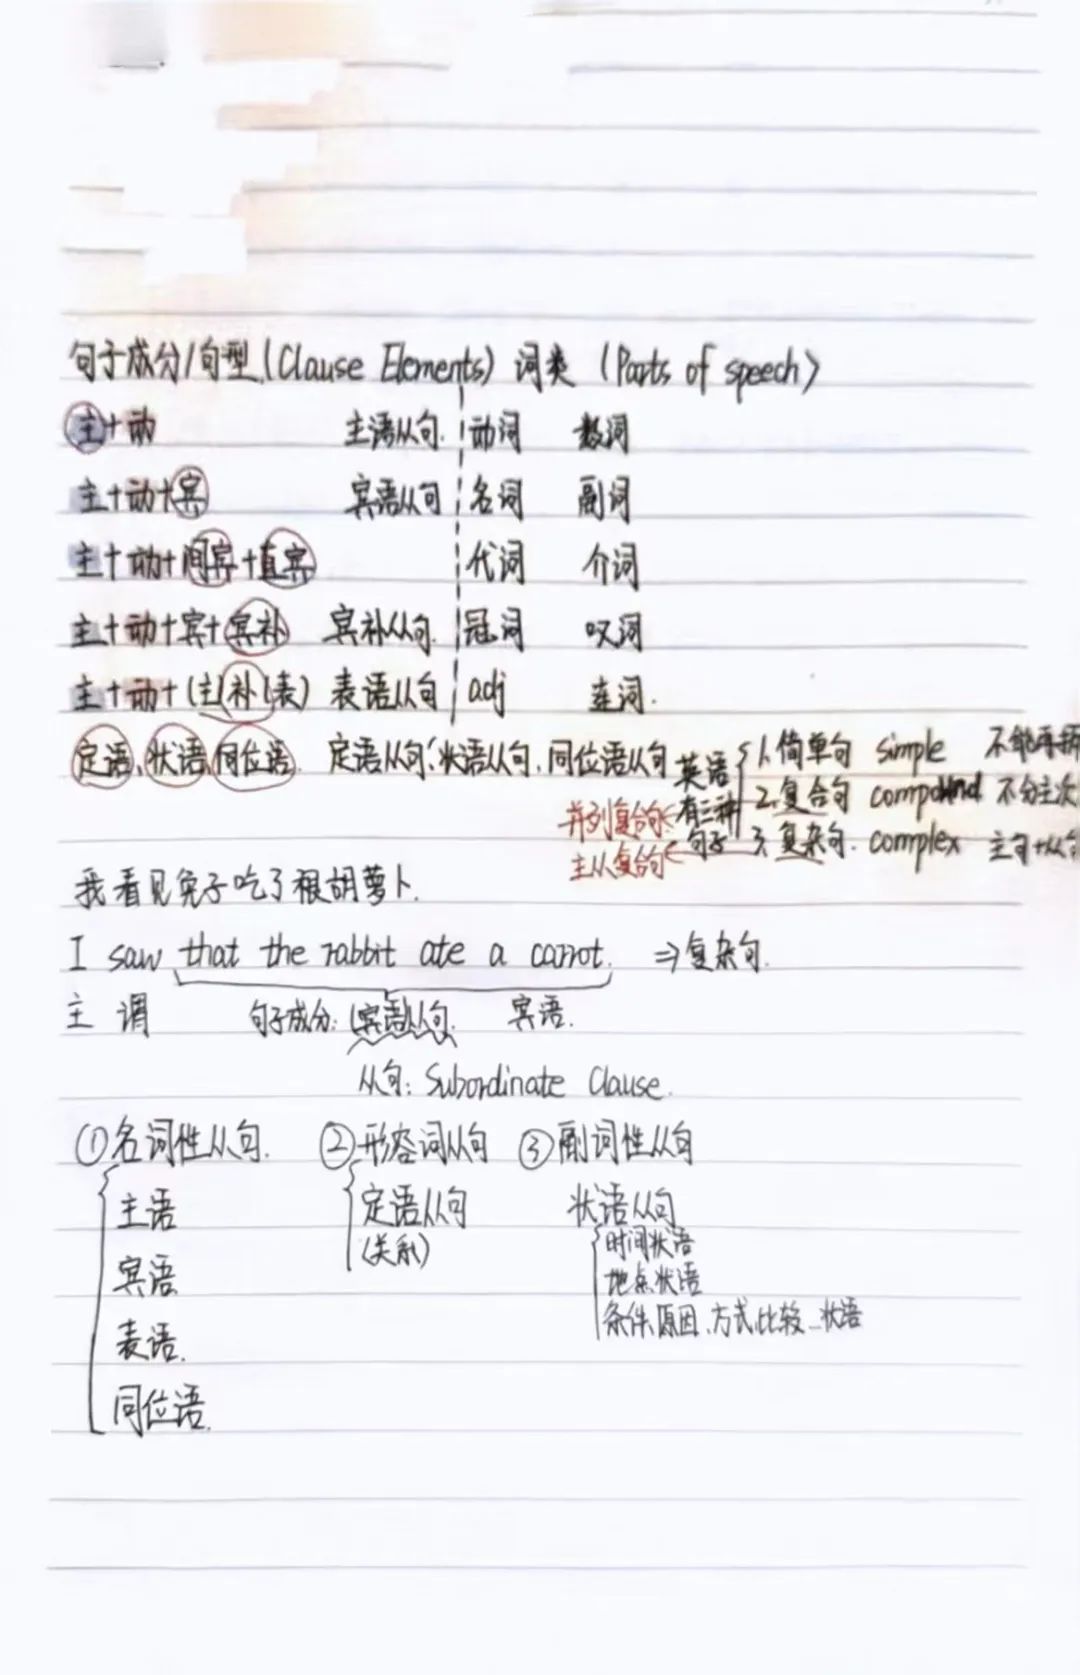 句子成分/句型(Clause Elements) 词类 (Parts of speech)
主+动 主语从句. 动词 数词
主+动+宾 宾语从句 名词 副词
主+动+间宾+直宾 代词 介词
主+动+宾+宾补 宾补从句. 冠词 叹词
主+动+(主)补(表) 表语从句 adj 连词.
定语、状语、同位语. 定语从句、状语从句、同位语从句
英语有三种句子
1.简单句 simple 不能再拆
2.复合句 compound 不分主次
3.复杂句. complex 主句+从句
并列复合句
主从复合句
我看见兔子吃了根胡萝卜.
I saw that the rabbit ate a carrot. ⇒复杂句.
主 谓 句子成分:宾语从句. 宾语.
从句: Subordinate Clause.
①名词性从句. ②形容词从句 ③副词性从句
主语 定语从句 状语从句
(关系) 时间状语
宾语 地点状语
条件、原因、方式、比较...状语
表语.
同位语.